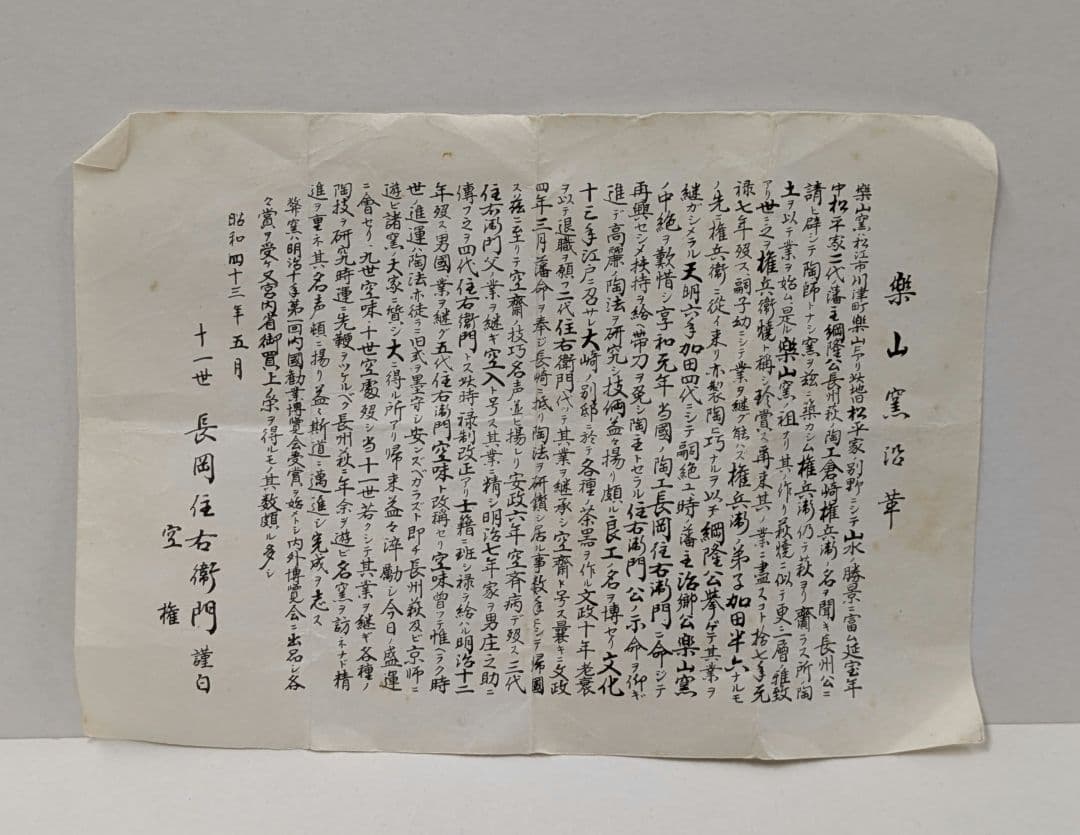 樂山窯沿革
樂山窯ハ松江市川津町樂山ニアリ此地旧松平家ノ別野ニシテ山水ノ勝景ニ富ム延宝年
中松平家二代藩主綱隆公長州萩ノ陶工倉崎権兵衛ノ名ヲ聞キ長州公ニ
請ヒ辟シテ陶師トナシ窯ヲ茲ニ築カシム権兵衛仍テ萩ヨリ齎ラス所ノ陶
土ヲ以テ業ヲ始ム是レ樂山窯ノ祖ナリ其ノ作リ萩焼ニ似テ更ニ一層ノ雅致
アリ世ニ之ヲ権兵衛焼ト稱シ珍賞ス再来其ノ業ニ盡スコト拾七年元
禄七年歿ス嗣子幼ニシテ業ヲ継グ能ハズ権兵衛ノ弟子加田半六ナルモ
ノ先ニ権兵衛ニ從イ来リ亦製陶ニ巧ナルヲ以テ綱隆公挙ゲテ其業ヲ
継ガシメラル天明六年加田四代ニシテ嗣絶エ時ノ藩主治郷公樂山窯
ノ中絶ヲ歎惜シ享和元年当國ノ陶工長岡住右衛門ニ命シテ
再興セシメ扶持ヲ給ヘ帯刀ヲ免シ陶主トセラル住右衛門公ノ示命ヲ仰ギ
進デ高麗ノ陶法ヲ研究シ技倆益々揚リ頗ル良工ノ名ヲ博セリ文化
十三年江戸ニ召サレ大崎ノ別邸ニ於テ各種ノ茶器ヲ作ル文政十年老衰
ヲ以テ退職ヲ願フ二代住右衛門代ッテ其業ヲ継承シ空齋ト号ス曩キニ文政
四年三月藩命ヲ奉ジ長崎ニ抵リ陶法ヲ研鑽シ居ル事数年ニシテ帰國
ス茲ニ至リテ空齋ノ技巧名声並ビ揚レリ安政六年空斉病デ歿ス三代
住右衛門父ノ業ヲ継ギ空入ト号ス其業ニ精シ明治七年家ヲ男庄之助ニ
傳フ之ヲ四代住右衛門トス此時禄制改正アリ士籍ニ班シ禄ヲ給ハル明治十二
年歿ス男國ノ業ヲ継グ五代住右衛門空味ト改稱セリ空味曾フテ惟ヘラク時
世ノ進運ハ陶法亦徒ラニ旧式ヲ墨守シ安ンズベガラスト即チ長州萩及ビ京師ニ
遊ビ諸窯ノ大家ニ皆シ大ニ得ル所アリ帰来益々淬勵シ今日ノ盛運
ニ會セリ九世空味十世空處歿シ当十一世若クシテ其業ヲ継ギ各種ノ
陶技ヲ研究時運ニ先鞭ヲツケルベク長州萩ニ年余ヲ遊ビ名窯ヲ訪ネナド精
進ヲ重ネ其名声頓ニ揚リ益々斯道ニ邁進シ完成ヲ志ス
弊窯ハ明治十年第一回内國勧業博覧会受賞ヲ始メトシ内外博覧会ニ出品各
々賞ヲ受ケ又宮内省御買上ノ栄ヲ得ルモノ其数頗ル多シ
昭和四十三年五月
十一世 長岡住右衛門謹白
空権